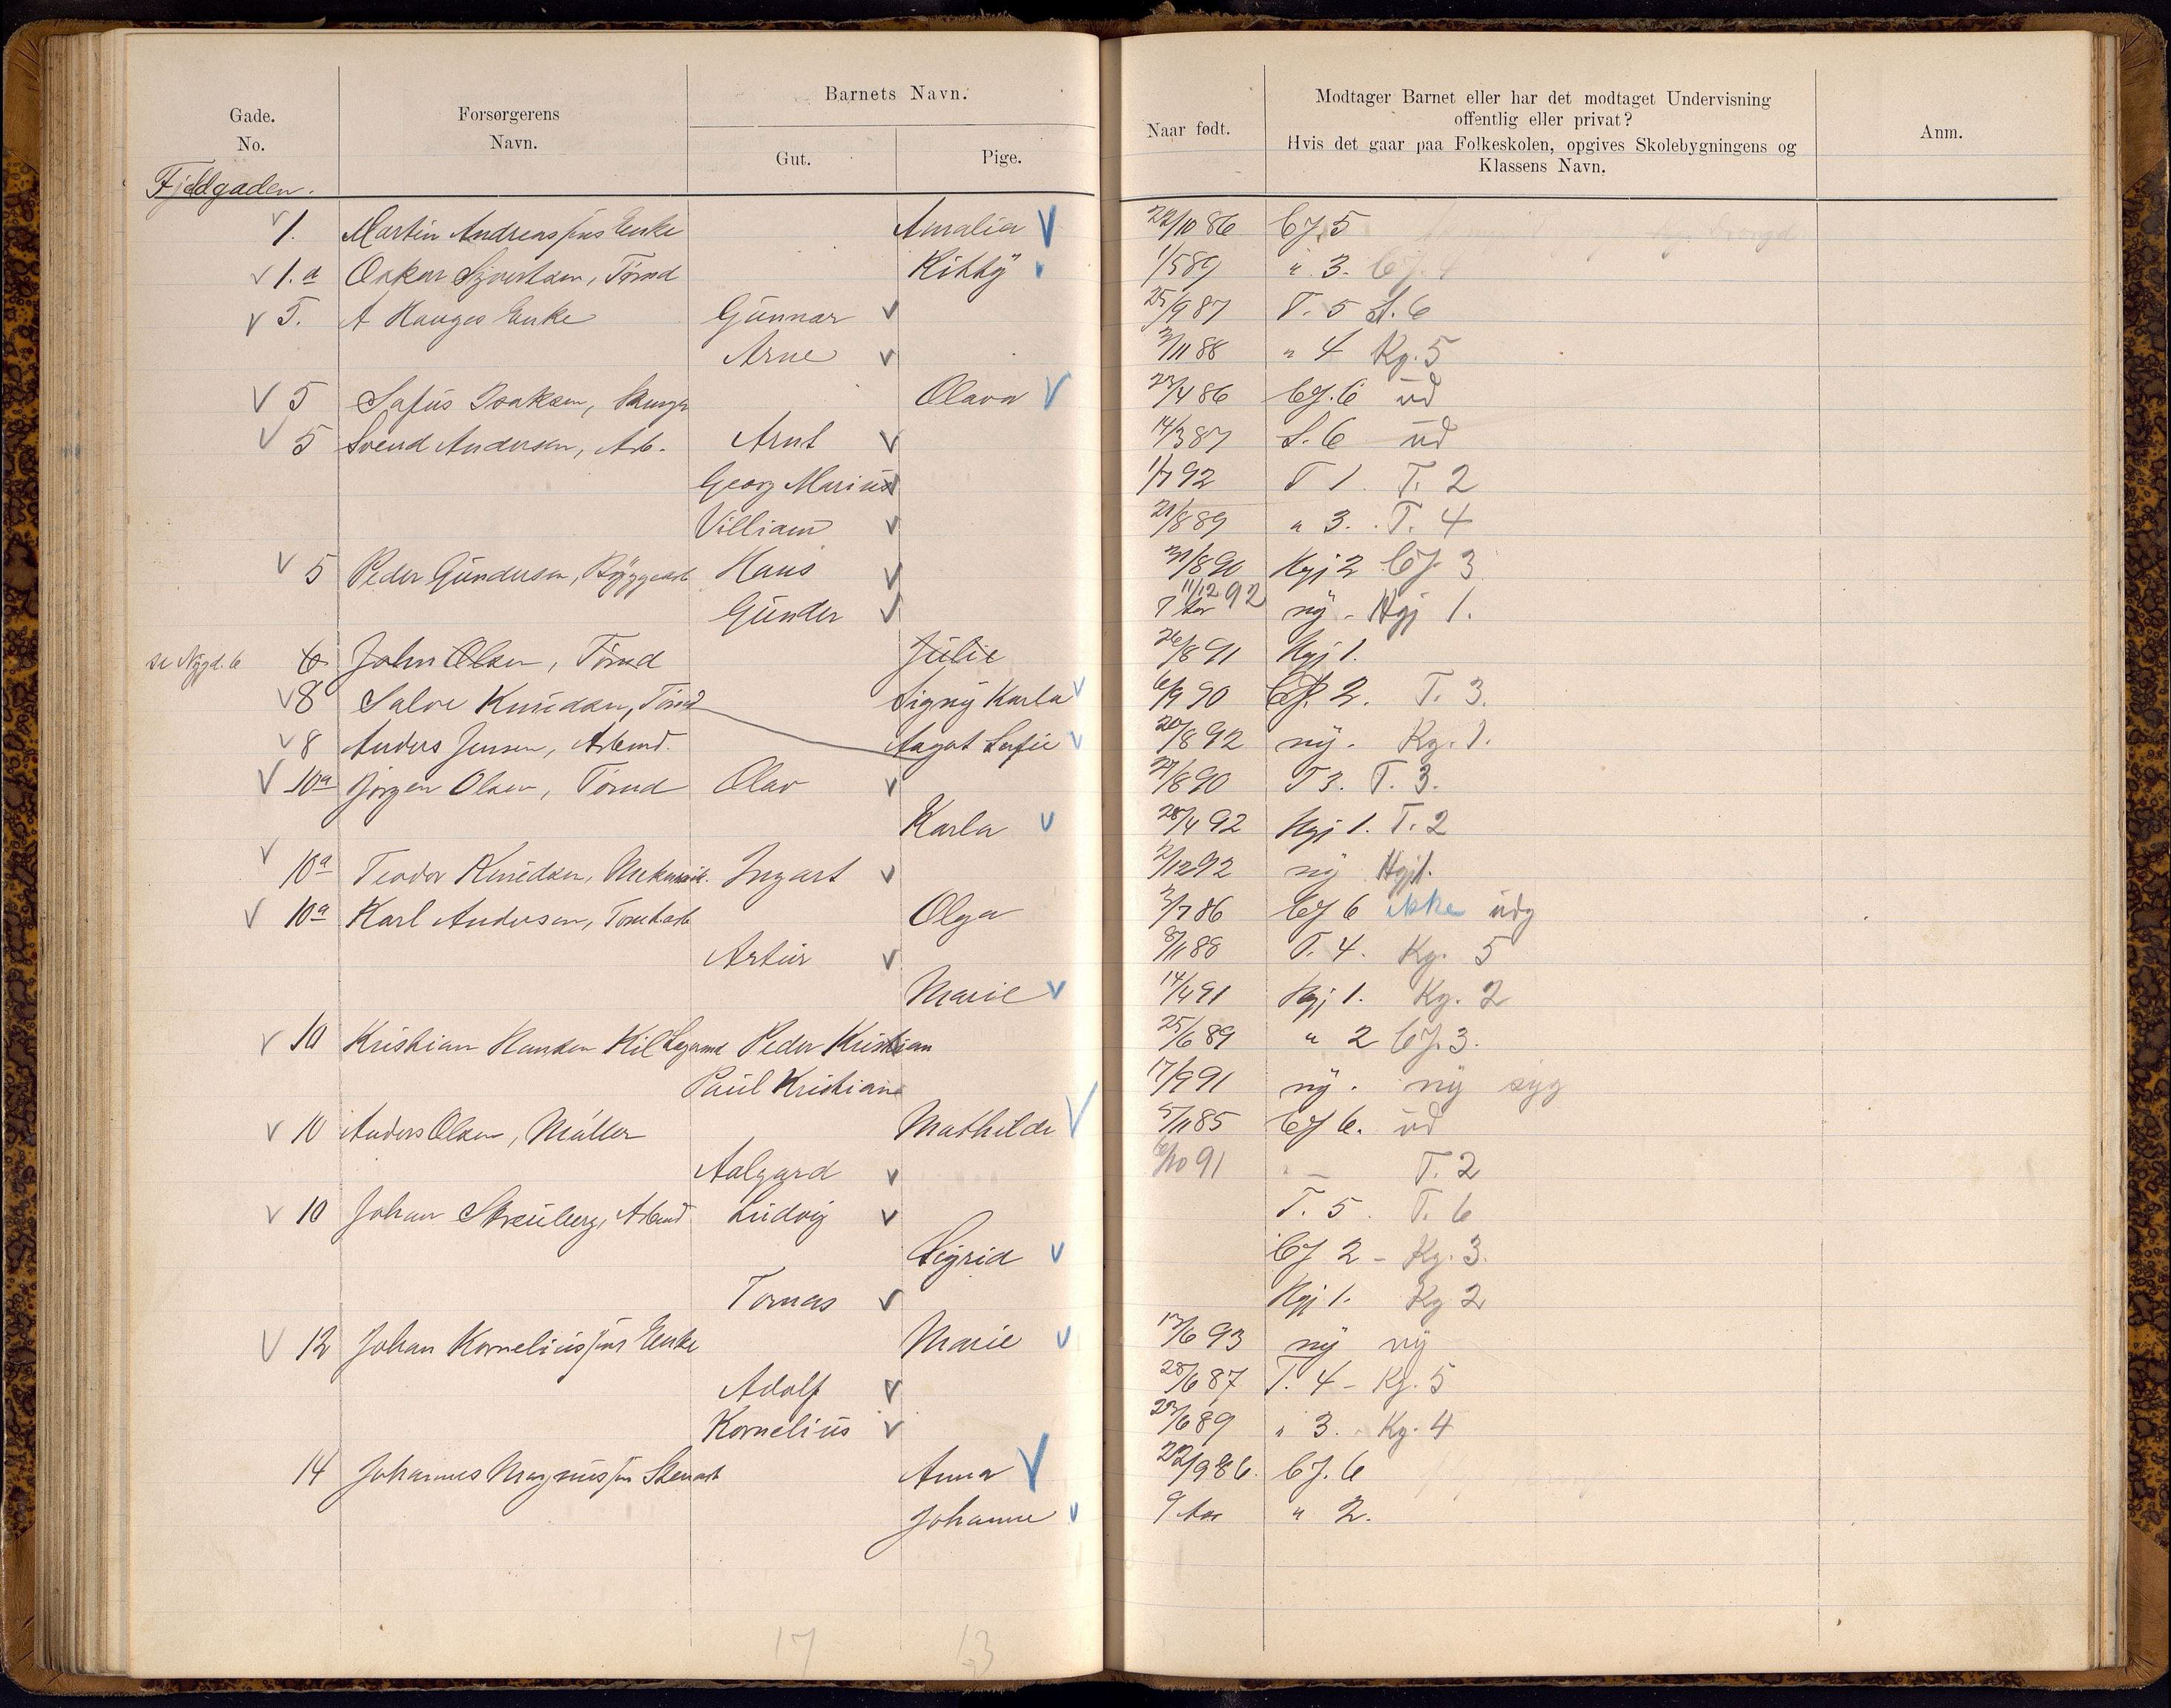 Gade.
No.
Forsørgerens
Navn.
Barnets Navn.
Gut.
Pige.
Naar født.
Modtager Barnet eller har det modtaget Undervisning
offentlig eller privat?
Hvis det gaar paa Folkeskolen, opgives Skolebygningens og
Klassens Navn.
Anm.
Fjeldgaden.
1. Martin Andreassens Enke Amalia 22/10 86 5
1.a Oskar Syvertsen, Tømd Kitty 1/5 89 " 3. 4
5. A Hauges Enke Gunnar 25/9 87 T. 5 S. 6
Arne 3/11 88 " 4 Kg. 5
5 Isaksen, Olava 23/4 86 6 ud
5 Svend Andersen, Arb. Arnt 14/3 87 S. 6 ud
Georg Marius 1/7 92 T 1. T. 2
Villiam 21/8 89 " 3. T. 4
5 Peder Gundersen, Bryggearb Hans 31/8 90 Kgj 2 3
Gunder 11/12 92 7 Aar ny - Hgj 1.
se Nygd. 6 6 John Olsen, Tømd Julie 26/8 91 Kgj 1.
8 Salve Knudsen, Tømd Signy Karla 6/9 90 2. T. 3.
8 Anders Jensen, Arbmd. Aagot Sofie 20/8 92 ny. Kg. 1.
10a Jørgen Olsen, Tømd Olav 27/8 90 T 3. T. 3.
Karla 28/4 92 Kgj 1. T. 2
10a Teodor Knudsen, Ingart 2/12 92 ny Hgj 1.
10a Karl Andersen, Tomtearb Olga 3/7 86 6 ikke udg
Artur 8/11 88 T. 4. Kg. 5
Marie 14/4 91 Kgj 1. Kg. 2
10 Kristian Hansen Kil Peder Kristian 25/6 89 " 2 3.
Paul Kristian 17/9 91 ny. ny syg
10 Anders Olsen, Møller Mathilde 5/11 85 6. ud
Aalgard 6/10 91 - T. 2
10 Johan Arbmd Ludvig T. 5. T. 6
Sigrid 2 - Kg. 3.
Tomas Kgj 1. Kg 2
12 Johan Korneliussens Enke Marie 17/6 93 ny ny
Adolf 28/6 87 T. 4 - Kg. 5
Kornelius 29/6 89 " 3. Kg. 4
14 Johannes Magnussen Stenarb Anna 22/9 86. 6
Johanne 9 Aar " 2.
17 13